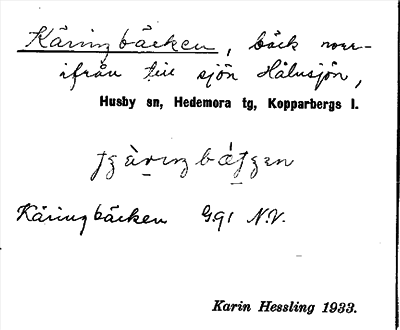 Käringbäcken, bäck norr-
ifrån till sjön Hålnsjön,
Husby sn, Hedemora tg, Kopparbergs l.
Käringbäcken Gg1 N.V.
Karin Hessling 1933.